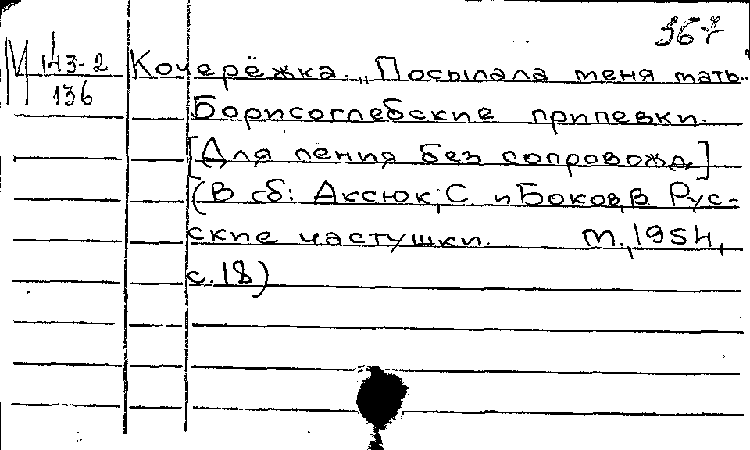 367
М 143-2 Кочерёжка. "Посылала меня мать..
136
Борисоглебские припевки.
[Для пения без сопровожд.]
(В сб: Аксюк, С и Боков, В. Рус-
ские частушки. М., 1954,
с. 18)